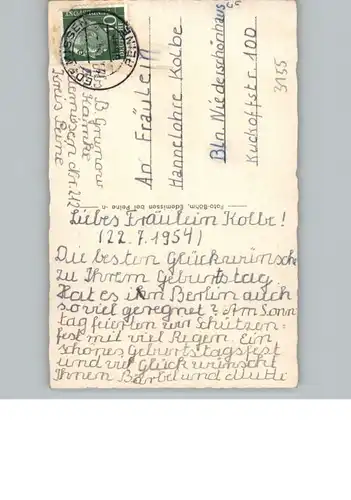 An Fräulein
Hannelohre Kolbe
Bln. Niederschönhaus
Kuckoffstr. 100
3155
10
Abs. B. Grunow
Kreis Peine
Foto-Böhm, Edemissen bei Peine
Liebes Fräulein Kolbe!
(22.7.1954)
Die besten Glückwünsche
zu Ihrem Geburtstag.
Hat es in Berlin auch
so viel geregnet? Am Sonn
tag feierten wir Schützen=
fest mit viel Regen. Ein
schönes Geburtstagsfest
und viel Glück wünscht
Ihnen Bärbel und Mutti